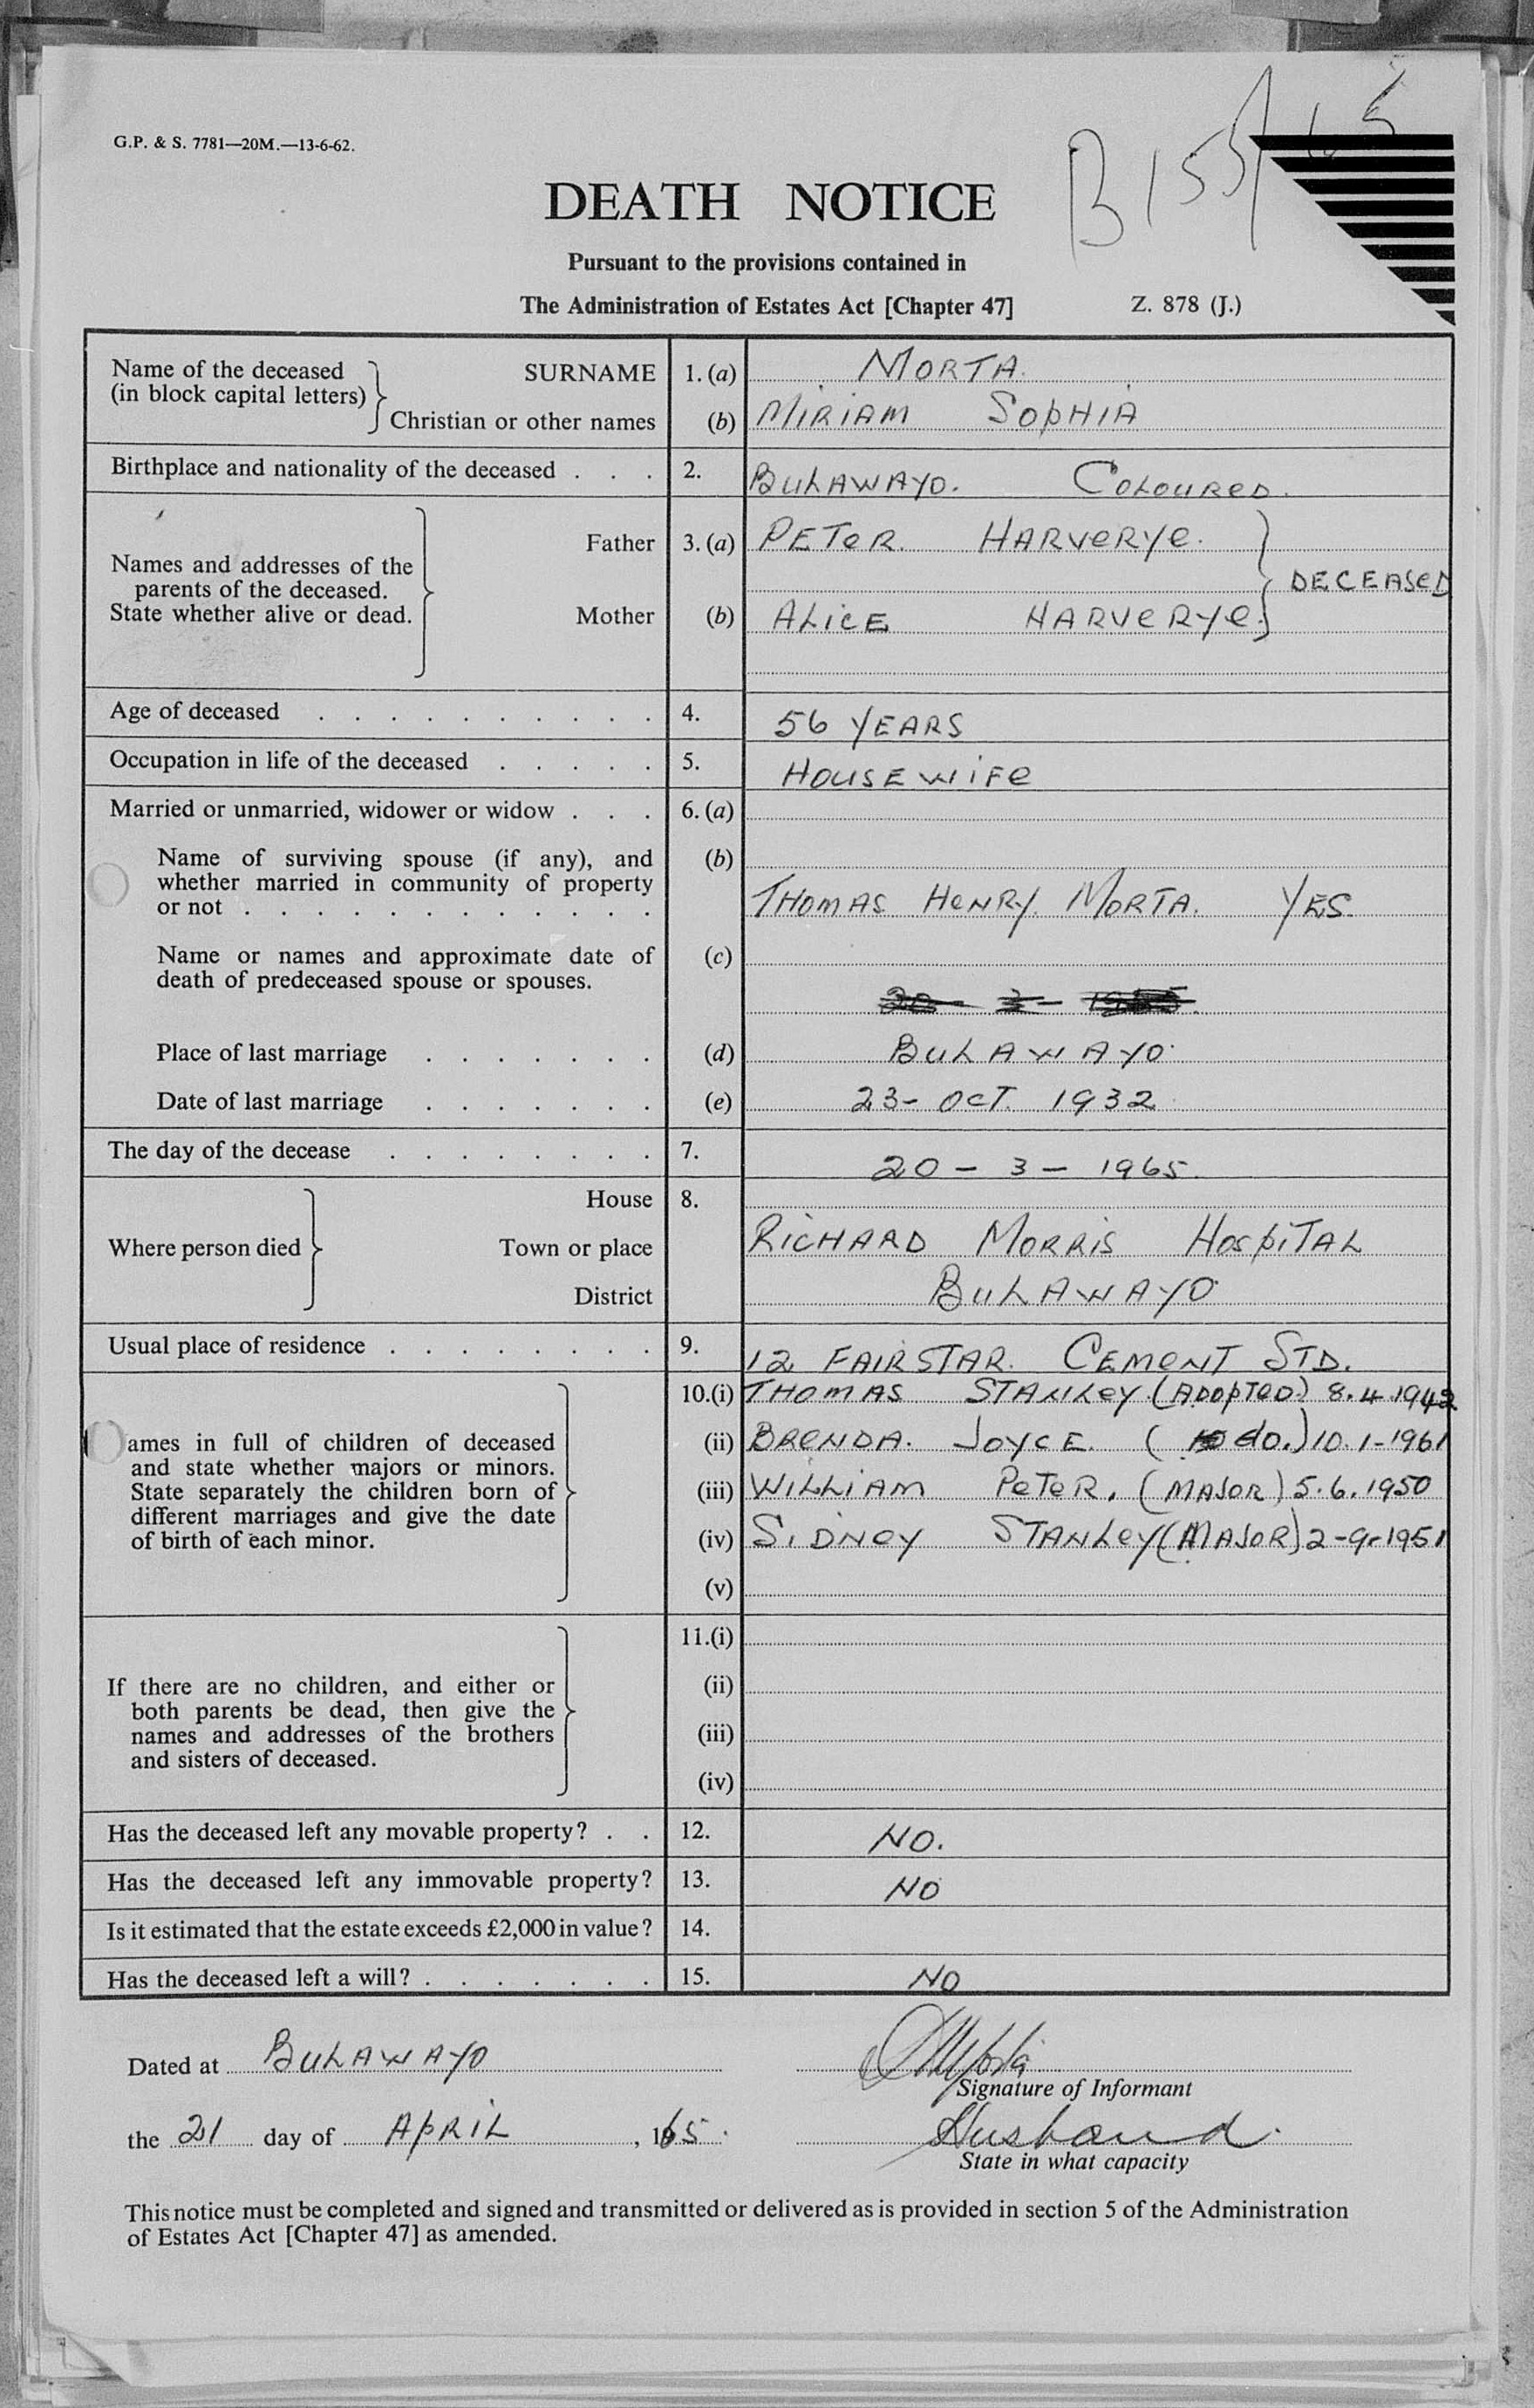 G.P. & S. 7781—20M.—13-6-62.
B 155/65
DEATH NOTICE
Pursuant to the provisions contained in
The Administration of Estates Act [Chapter 47]
Z. 878 (J.)
Name of the deceased (in block capital letters) SURNAME 1. (a) MORTA.
Christian or other names (b) MIRIAM SOPHIA
Birthplace and nationality of the deceased . . . 2. BULAWAYO. COLOURED.
Names and addresses of the parents of the deceased. State whether alive or dead.
Father 3. (a) PETER. HARVERYE.
DECEASED
Mother (b) ALICE HARVERYE.
Age of deceased . . . . . . . . . . 4. 56 YEARS
Occupation in life of the deceased . . . . . 5. HOUSEWIFE
Married or unmarried, widower or widow . . . 6. (a)
Name of surviving spouse (if any), and (b)
whether married in community of property
or not . . . . . . . . . . . . THOMAS HENRY. MORTA. YES.
Name or names and approximate date of (c)
death of predeceased spouse or spouses.
Place of last marriage . . . . . . . (d) BULAWAYO.
Date of last marriage . . . . . . . (e) 23- OCT. 1932
The day of the decease . . . . . . . . 7. 20 - 3 - 1965.
House 8.
Where person died Town or place RICHARD MORRIS HOSPITAL
District BULAWAYO
Usual place of residence . . . . . . . . 9. 12 FAIRSTAR. CEMENT STD.
10.(i) THOMAS STANLEY (ADOPTED) 8.4.1942
ames in full of children of deceased (ii) BRENDA. JOYCE. ( do.) 10.1-1961
and state whether majors or minors.
State separately the children born of (iii) WILLIAM PETER. (MAJOR) 5.6.1950
different marriages and give the date
of birth of each minor. (iv) SIDNEY STANLEY (MAJOR) 2-9-1951
(v)
11.(i)
If there are no children, and either or (ii)
both parents be dead, then give the
names and addresses of the brothers (iii)
and sisters of deceased.
(iv)
Has the deceased left any movable property? . . 12. NO.
Has the deceased left any immovable property? 13. NO
Is it estimated that the estate exceeds £2,000 in value? 14.
Has the deceased left a will? . . . . . . . 15. NO
Dated at BULAWAYO
Signature of Informant
the 21 day of APRIL, 165.
Husband.
State in what capacity
This notice must be completed and signed and transmitted or delivered as is provided in section 5 of the Administration
of Estates Act [Chapter 47] as amended.